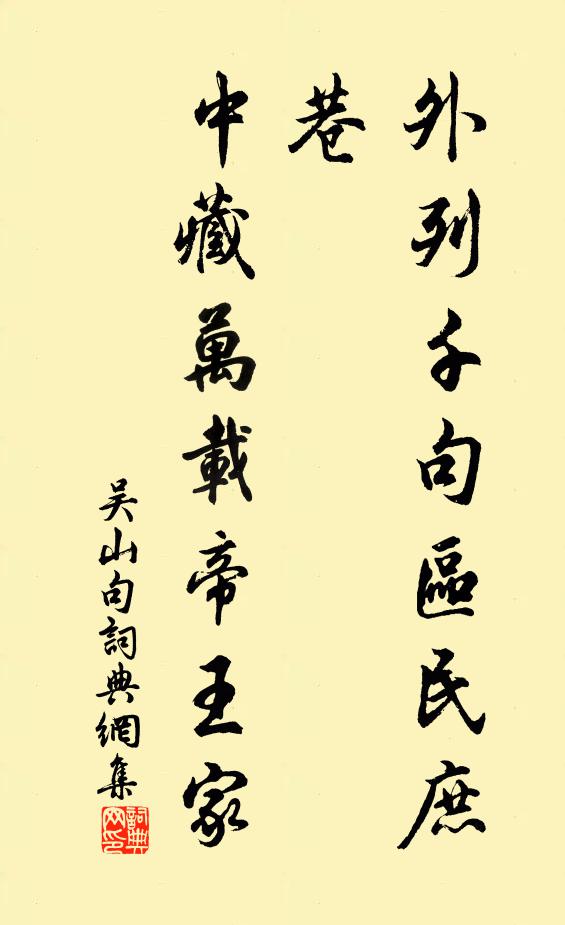 外列千句區民庶
巷
中藏萬載帝王家
吴山句詞典網集
詞典網印